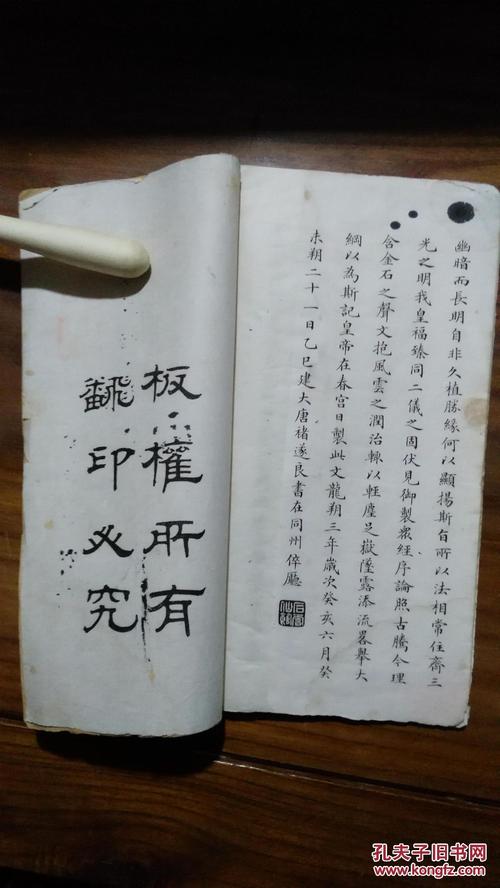 幽暗而長明自非久植勝緣何以顯揚斯旨所以法相常住齊三
光之明我皇福臻同二儀之固伏見御製衆經序論照古騰今理
含金石之聲文抱風雲之潤治輒以輕塵足嶽墜露添流畧舉大
綱以為斯記皇帝在春宮日製此文龍朔三年歲次癸亥六月癸
未朔二十一日乙巳建大唐褚遂良書在同州倅廳
板權所有
飜印必究
孔夫子旧书网
www.kongfz.com